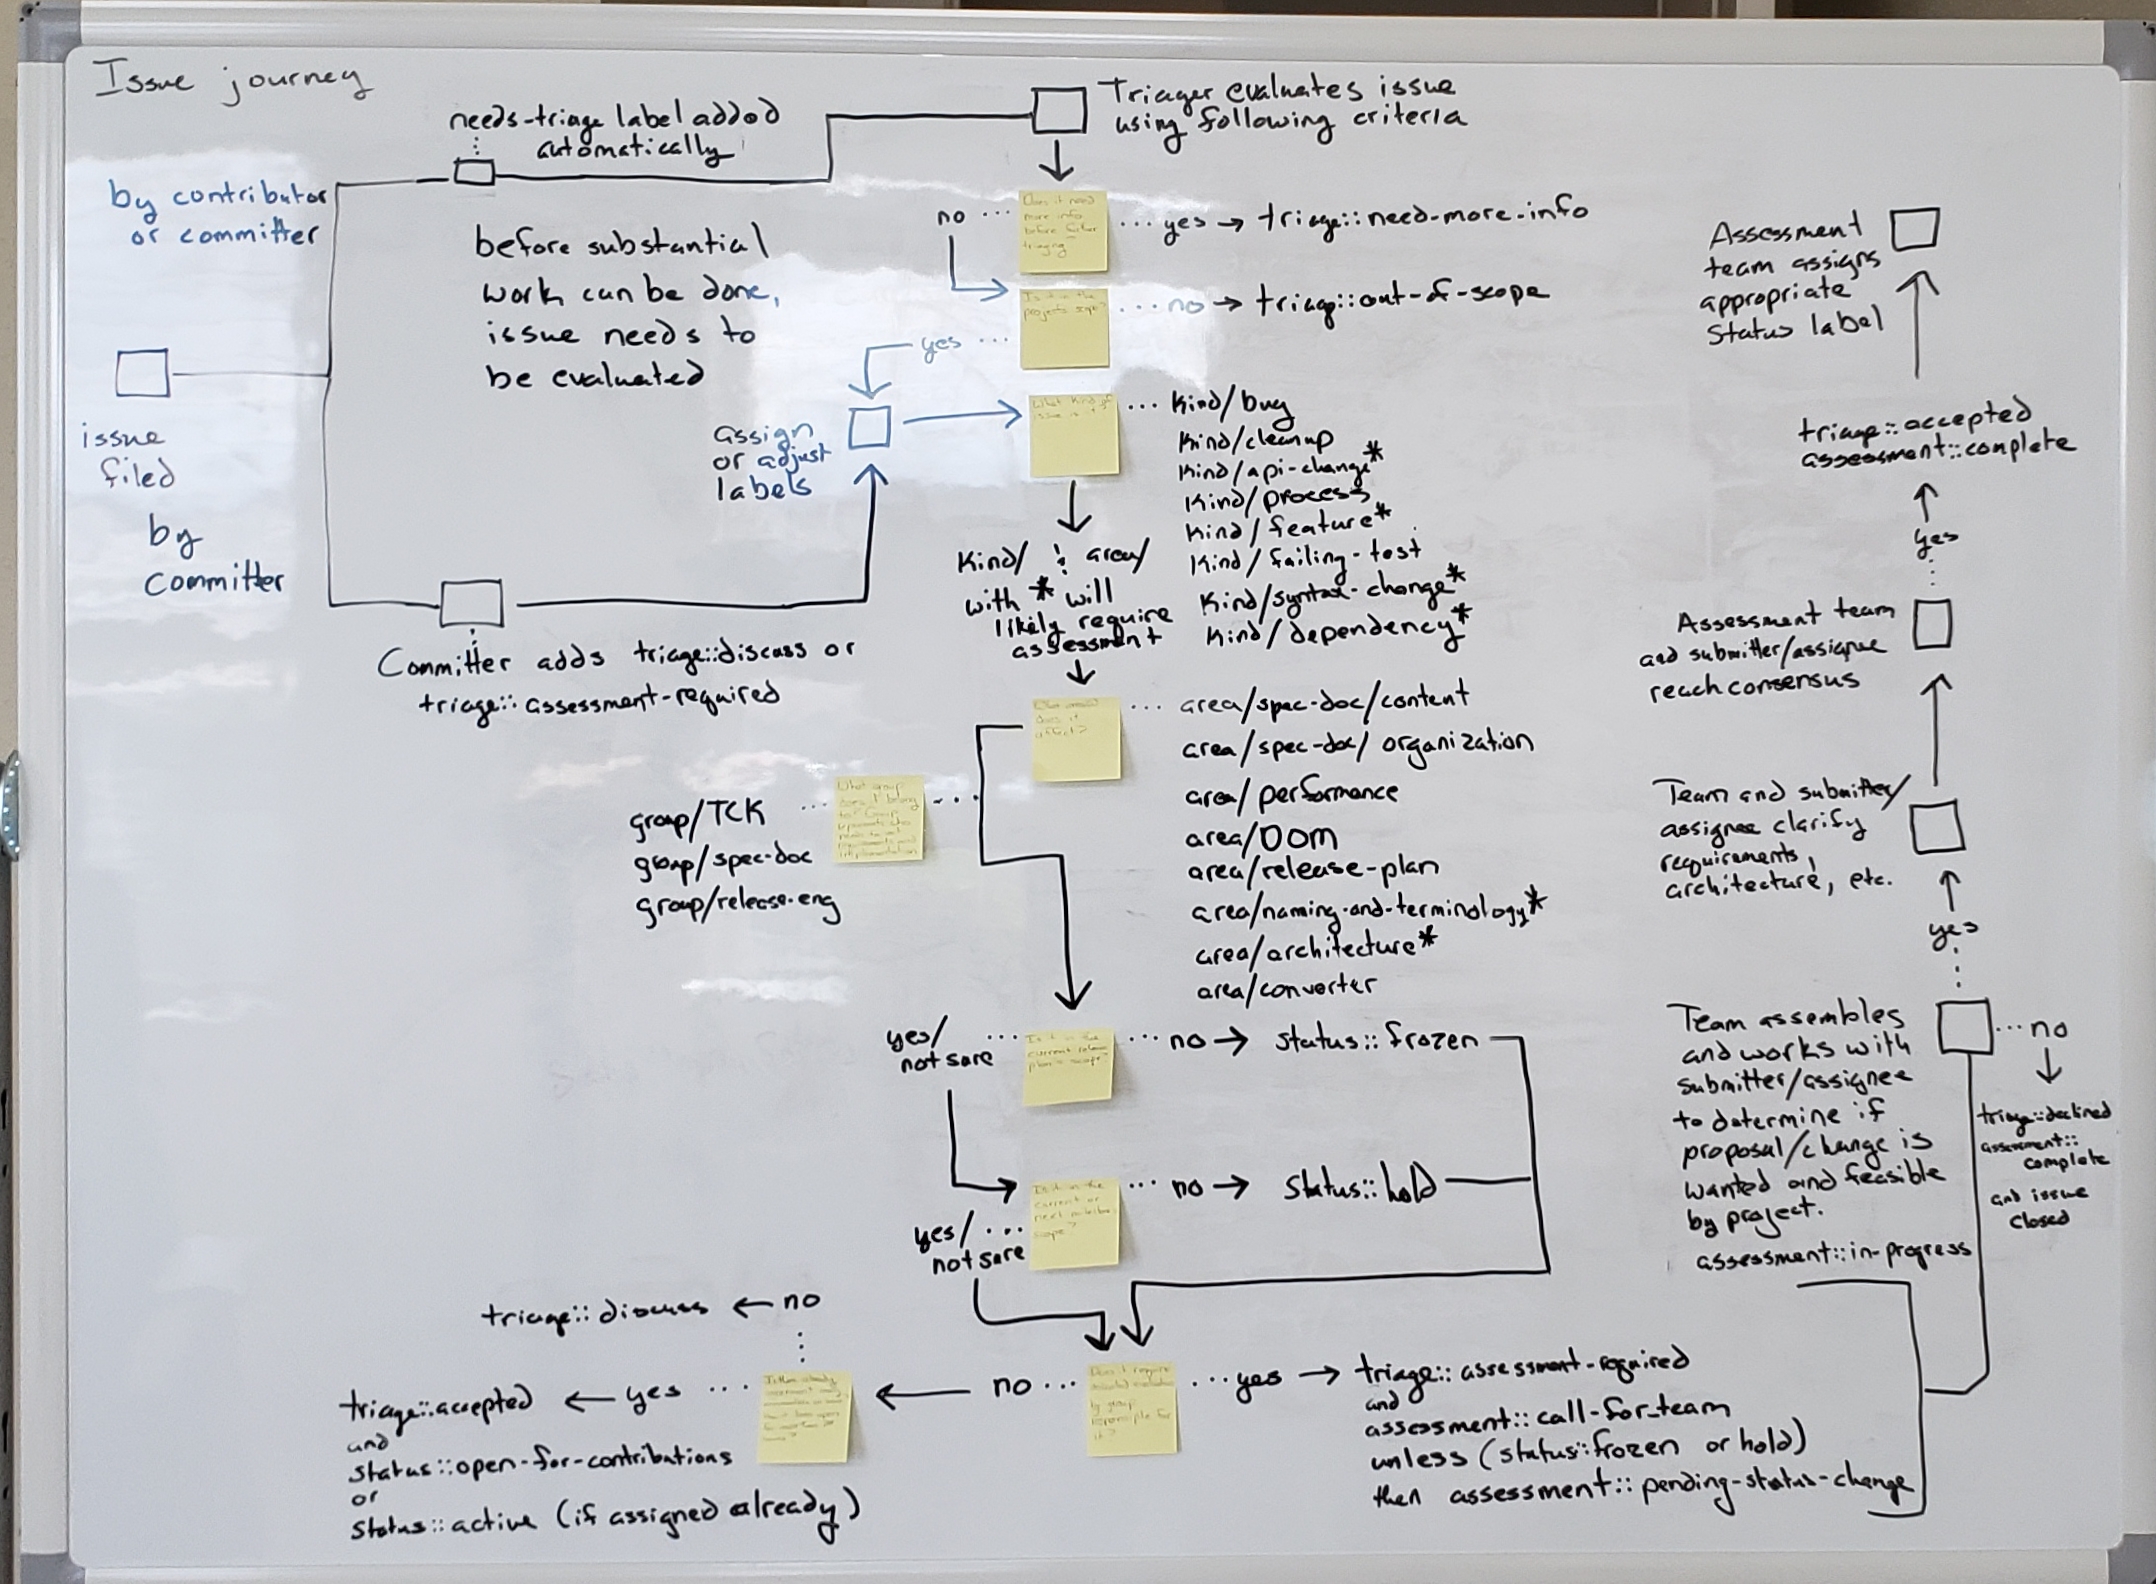 Issue journey
needs-triage label added
automatically
Triager evaluates issue
using following criteria
by contributor
or committer
before substantial
work can be done,
issue needs to
be evaluated
issue
filed
by
committer
Committer adds triage::discuss or
triage::assessment-required
Does it need
more info
before
triaging
no
yes
triage::need-more-info
Is it in the
projects scope?
no
triage::out-of-scope
yes
assign
or adjust
labels
What kind of
issue is it
kind/bug
kind/cleanup
kind/api-change*
kind/process
kind/feature*
kind/failing-test
kind/syntax-change*
kind/dependency*
kind/ & area/
with * will
likely require
assessment
does it
affect?
area/spec-doc/content
area/spec-doc/organization
area/performance
area/DOM
area/release-plan
area/naming-and-terminology*
area/architecture*
area/converter
What group
does it belong
to? Group
group/TCK
group/spec-doc
group/release-eng
Is it in the
current release
plan's scope?
yes/
not sure
no
status::frozen
Is it in the
current or
next
scope?
no
status::hold
yes/
not sure
Does it require
by group
responsible for
it?
yes
triage::assessment-required
and
assessment::call-for-team
unless (status::frozen or hold)
then assessment::pending-status-change
no
no
triage::discuss
yes
triage::accepted
and
status::open-for-contributions
or
status::active (if assigned already)
Team assembles
and works with
submitter/assignee
to determine if
proposal/change is
wanted and feasible
by project.
assessment::in-progress
no
triage::declined
assessment::
complete
and issue
closed
yes
Team and submitter/
assignee clarify
requirements,
architecture, etc.
Assessment team
and submitter/assignee
reach consensus
yes
triage::accepted
assessment::complete
Assessment
team assigns
appropriate
status label